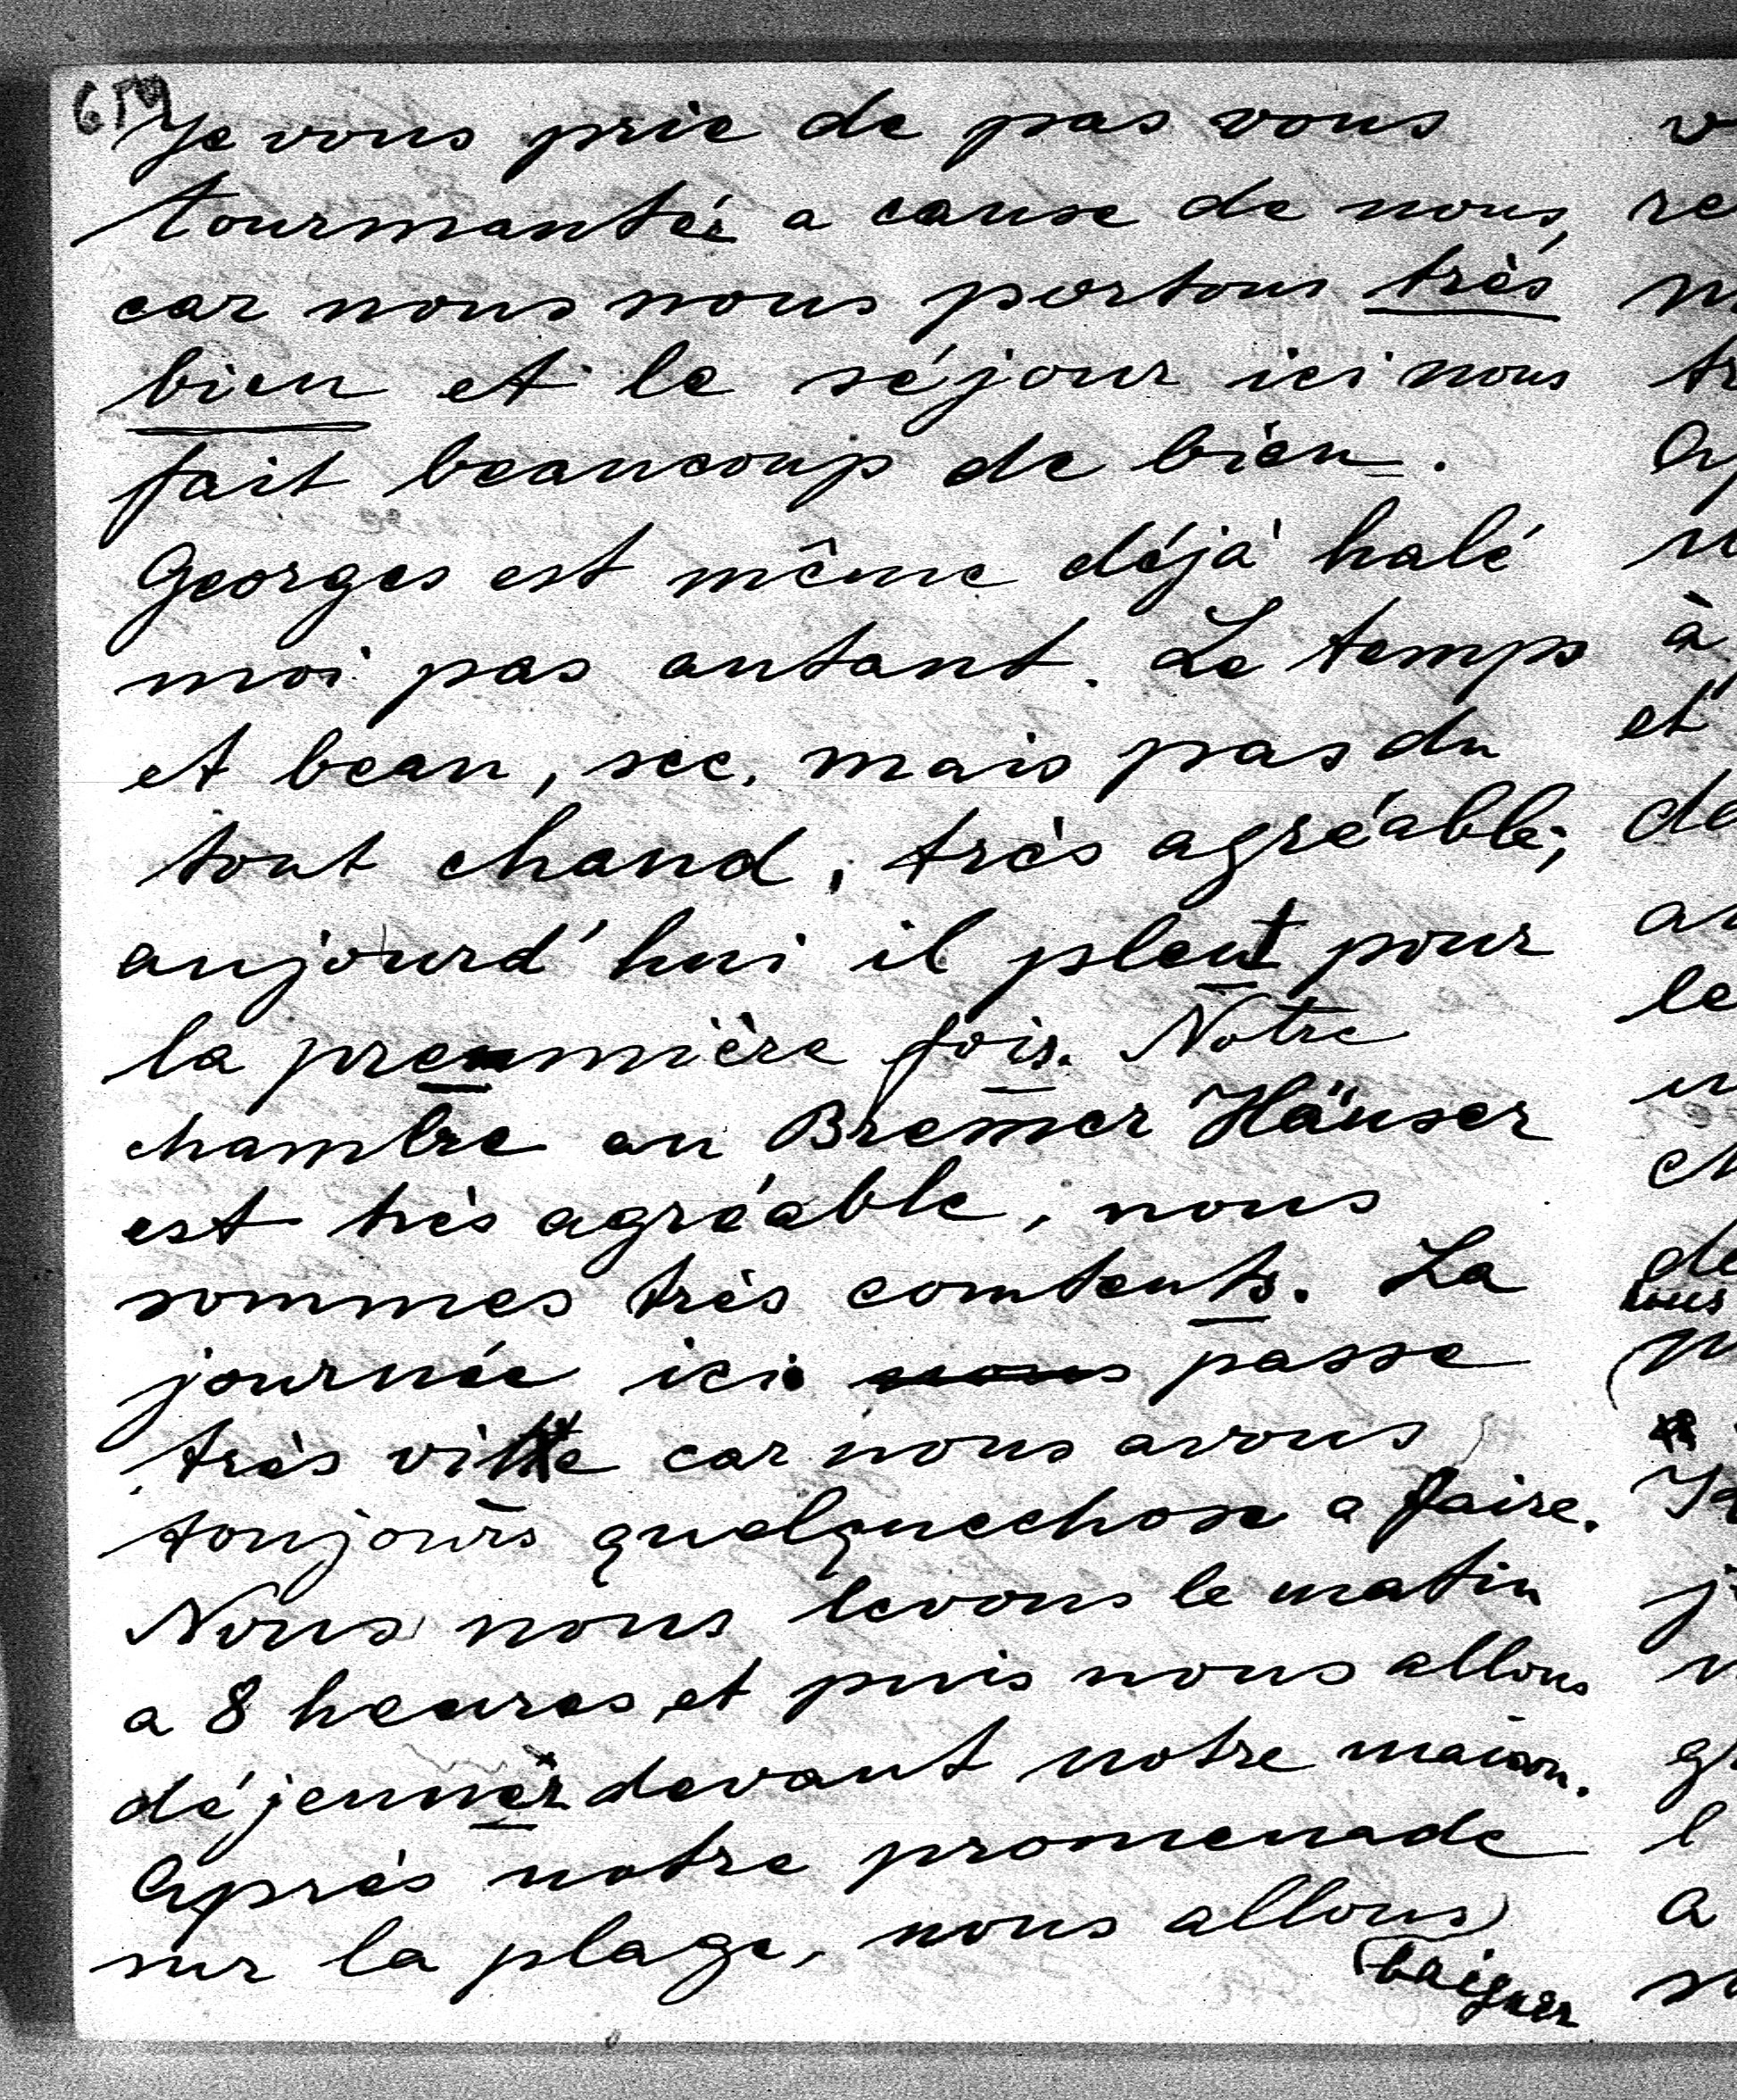 Je vous prie de pas vous
tourmantér a cause de nous,
car nous nous portons très
bien et le séjour ici nous
fait beaucoup de bien.
Georges est même déjà halé
moi pas autant. Le temps
et beau, sec, mais pas du
tout chaud, très agréable;
aujourd'hui il pleut pour
la premmière fois. Notre
chambre au Bremer Häuser
est très agréable, nous
sommes très comtents. La
journée ici nous passe
très vitte car nous avons
toujours quelquechose a faire.
Nous nous levons le matin
a 8 heures et puis nous allons
déjeunner devant notre maison.
Après notre promenade
sur la plage, nous allons
baigner